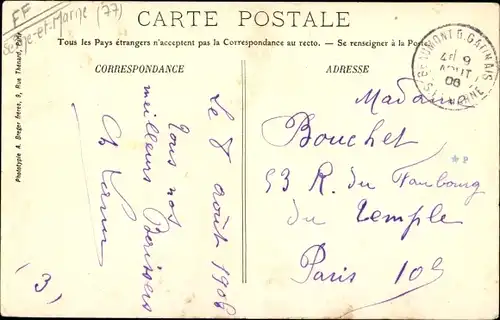 FF
Seine-et-Marne (77)
CARTE POSTALE
Tous les Pays étrangers n'acceptent pas la Correspondance au recto. — Se renseigner à la Poste
CORRESPONDANCE
ADRESSE
Phototypie A. Breger frères, 9, Rue Thénard, Paris
BEAUMONT D. GATINAIS
9
AOUT
06
Le 8 août 1906
Tous nos
meilleurs Baisers
(3)
Madame
Bouchet
53 R. du Faubourg
du Temple
Paris 10e